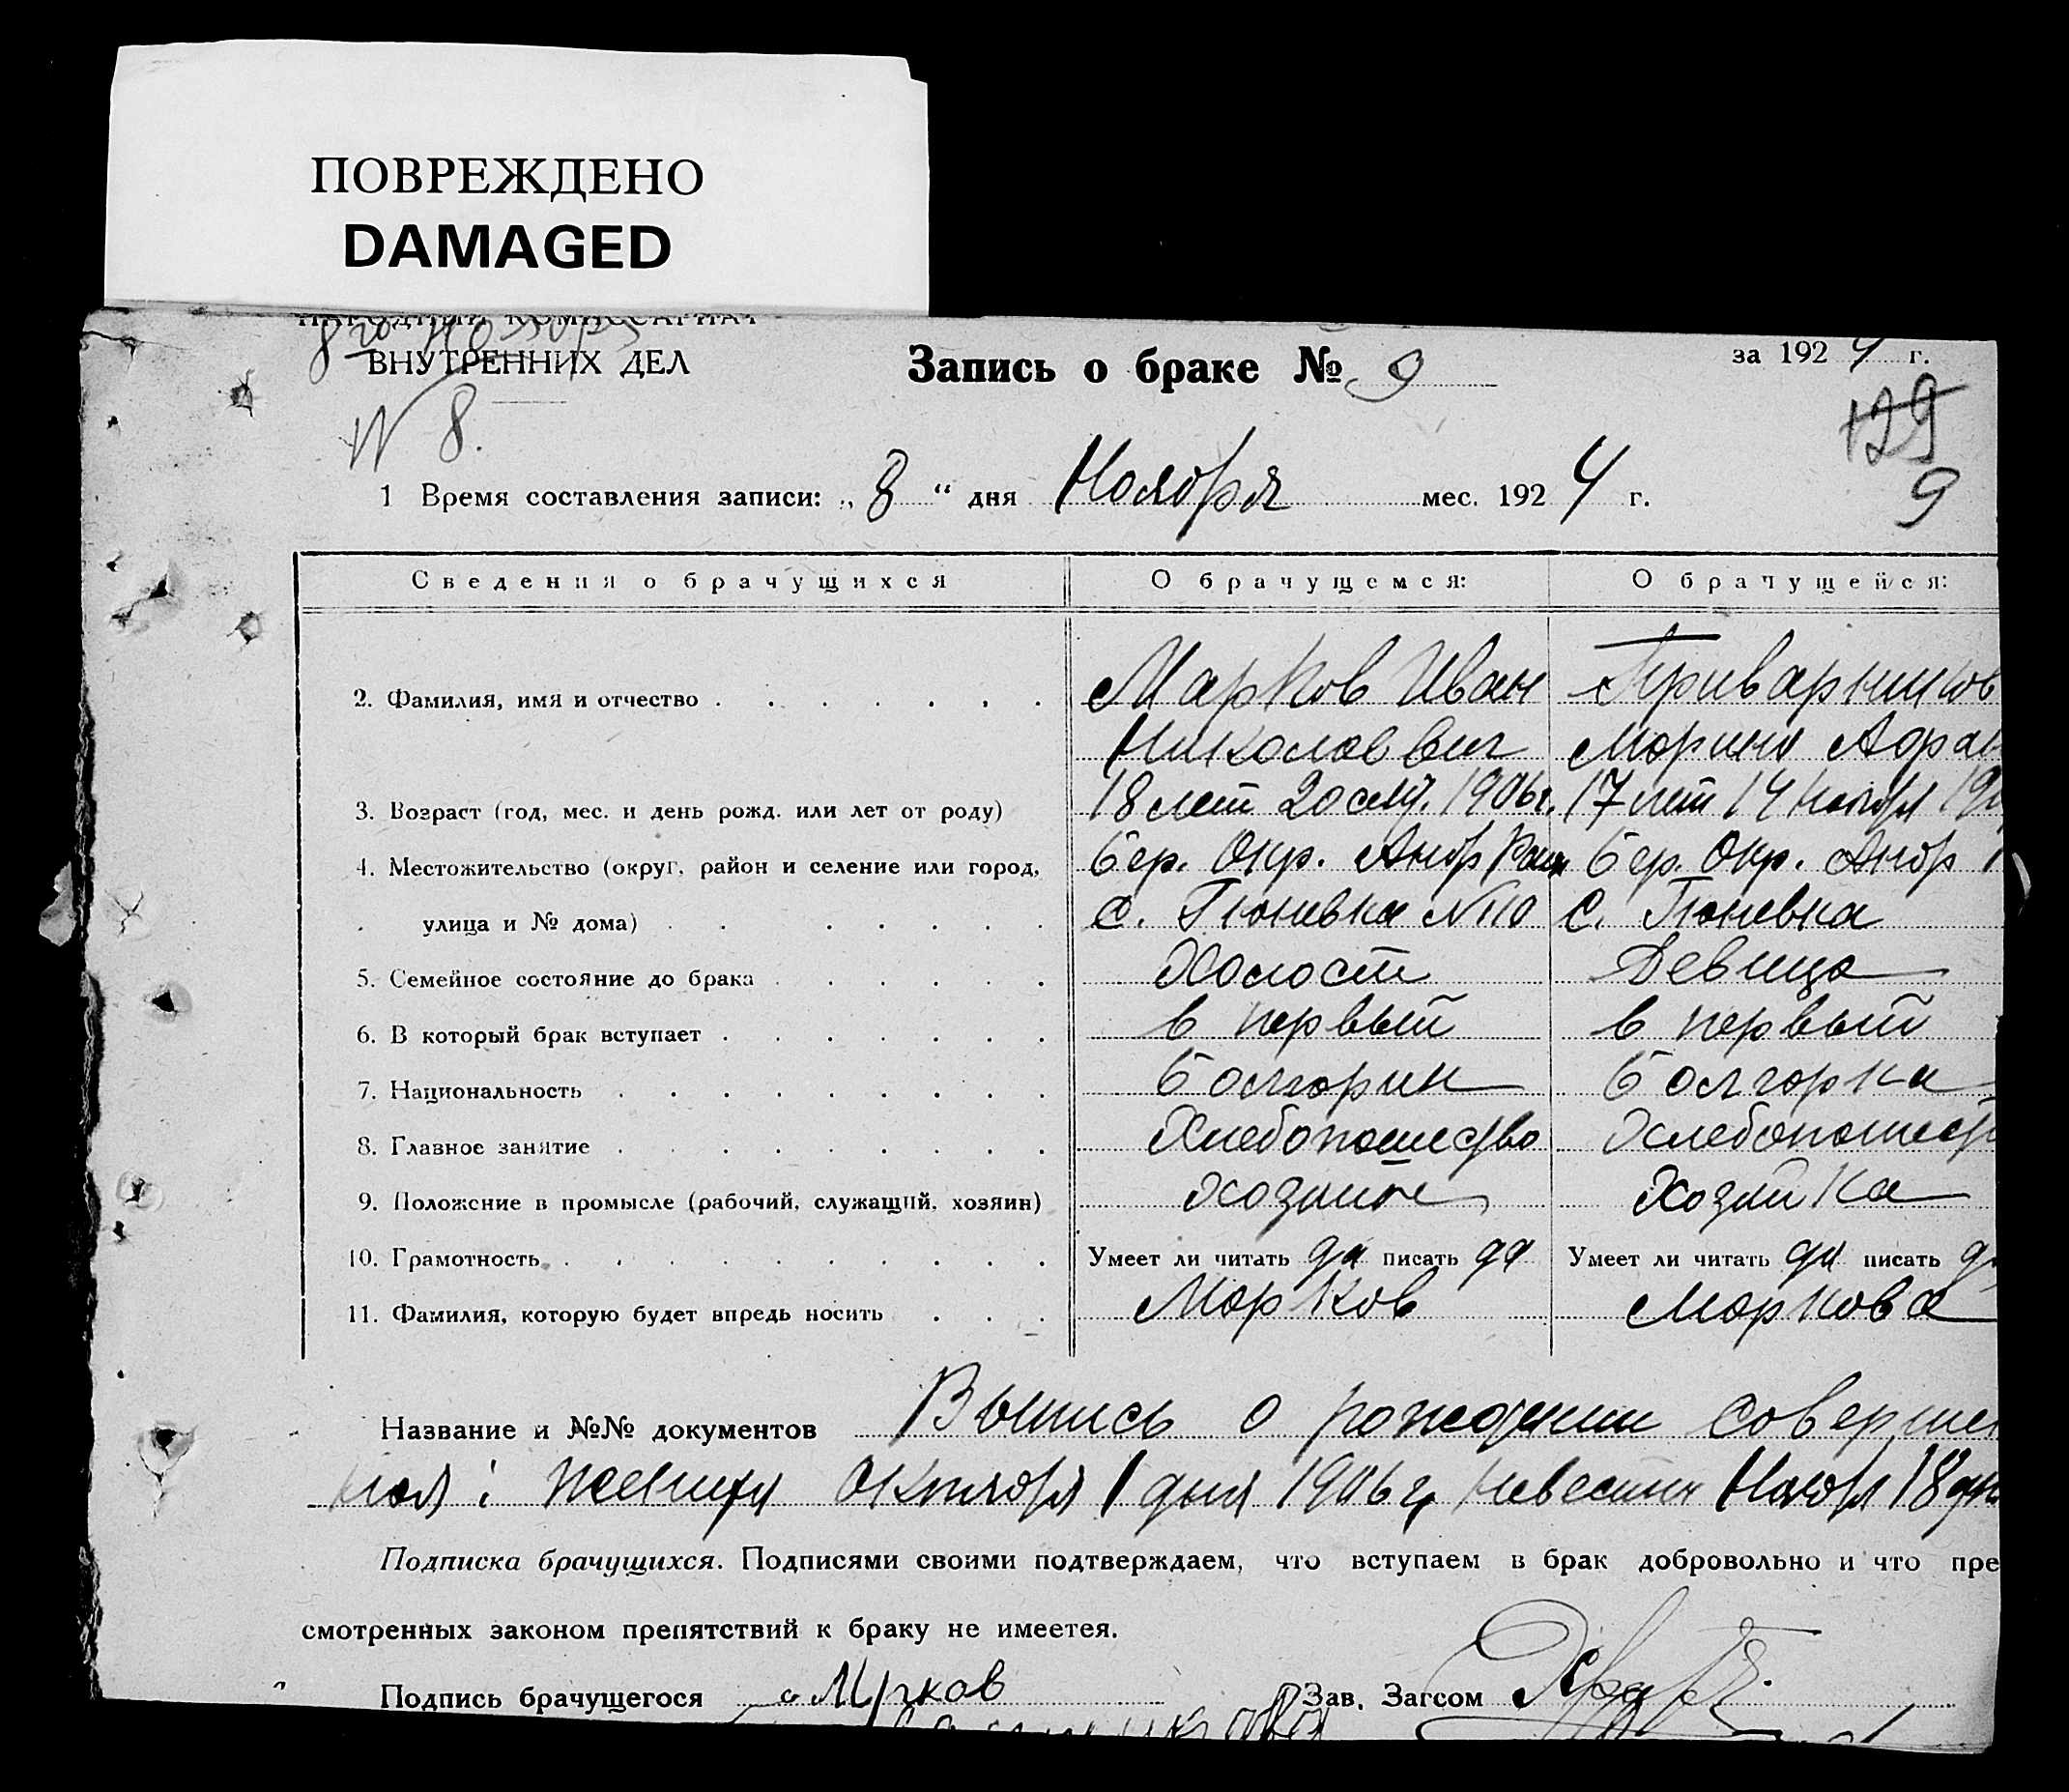 ПОВРЕЖДЕНО
DAMAGED
НАРОДНЫЙ КОМИССАРИАТ
8го Ноября
ВНУТРЕННИХ ДЕЛ
Запись о браке № 9
за 1924 г.
N 8.
129
9
1 Время составления записи: „ 8 “ дня Ноября мес. 1924 г.
Сведения о брачущихся О брачущемся: О брачущейся:
2. Фамилия, имя и отчество Марков Иван Приварников
Николаевич Морина Адран
3. Возраст (год, мес. и день рожд. или лет от роду) 18 лет 1906г. 17 лет 14 Ноября 190
4. Местожительство (округ, район и селение или город, Бер. Окр. Анор Рай Бер. Окр. Анор
улица и № дома) с. Гюневка N110 с. Гюневка
5. Семейное состояние до брака Холост Девица
6. В который брак вступает в первый в первый
7. Национальность Болгорин Болгорка
8. Главное занятие Хлебопашество Хлебопашест
9. Положение в промысле (рабочий, служащий, хозяин) хозяин Хозяйка
10. Грамотность Умеет ли читать да писать да Умеет ли читать да писать да
11. Фамилия, которую будет впредь носить Морков Моркова
Название и №№ документов Выпись о рождении совершен
ная: жениха Октября 1 дня 1906 г, невести Ноября 18 дня
Подписка брачущихся. Подписями своими подтверждаем, что вступаем в брак добровольно и что пре
смотренных законом препятствий к браку не имеется.
Подпись брачущегося Мрков Зав. Загсом